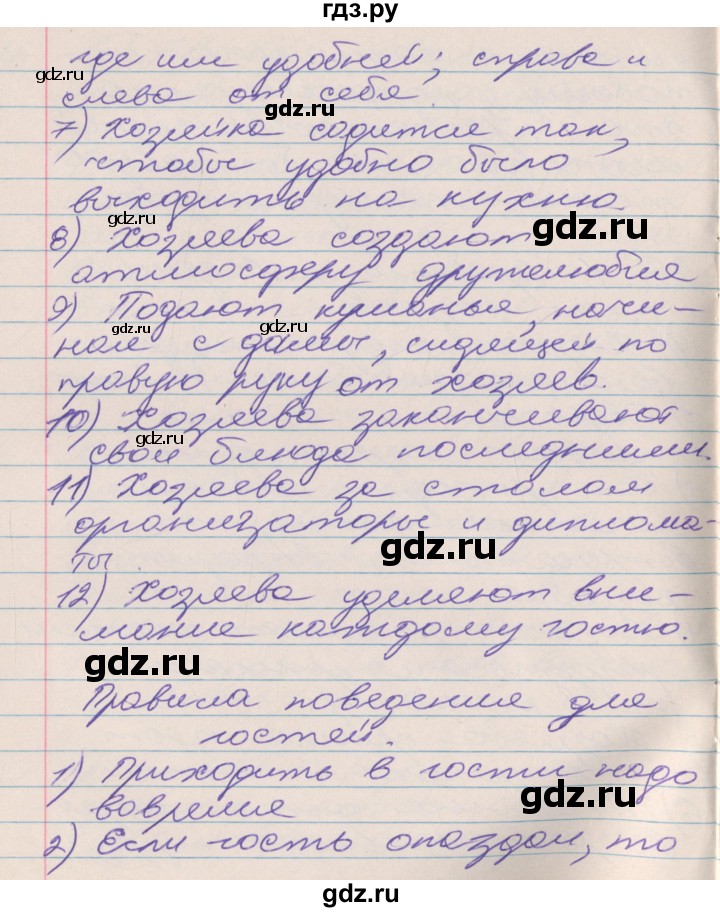 гдз.ру
где им удобней; справа и
слева от себя.
7) Хозяйка садится так,
чтобы удобно было
выходить на кухню.
8) Хозяева создают
атмосферу дружелюбия
9) Подают кушанья, начи-
ная с дамы, сидящей по
правую руку от хозяев.
10) Хозяева заканчивают
свои блюда последними.
11) Хозяева за столом
организаторы и диплома-
ты.
12) Хозяева уделяют вни-
мание каждому гостю.
Правила поведения для
гостей.
1) Приходить в гости надо
вовремя
2) Если гость опоздал, то
gdz.ru
gdz.ru
gdz.ru
gdz.ru
gdz.ru
gdz.ru
gdz.ru
gdz.ru
gdz.ru
gdz.ru
gdz.ru